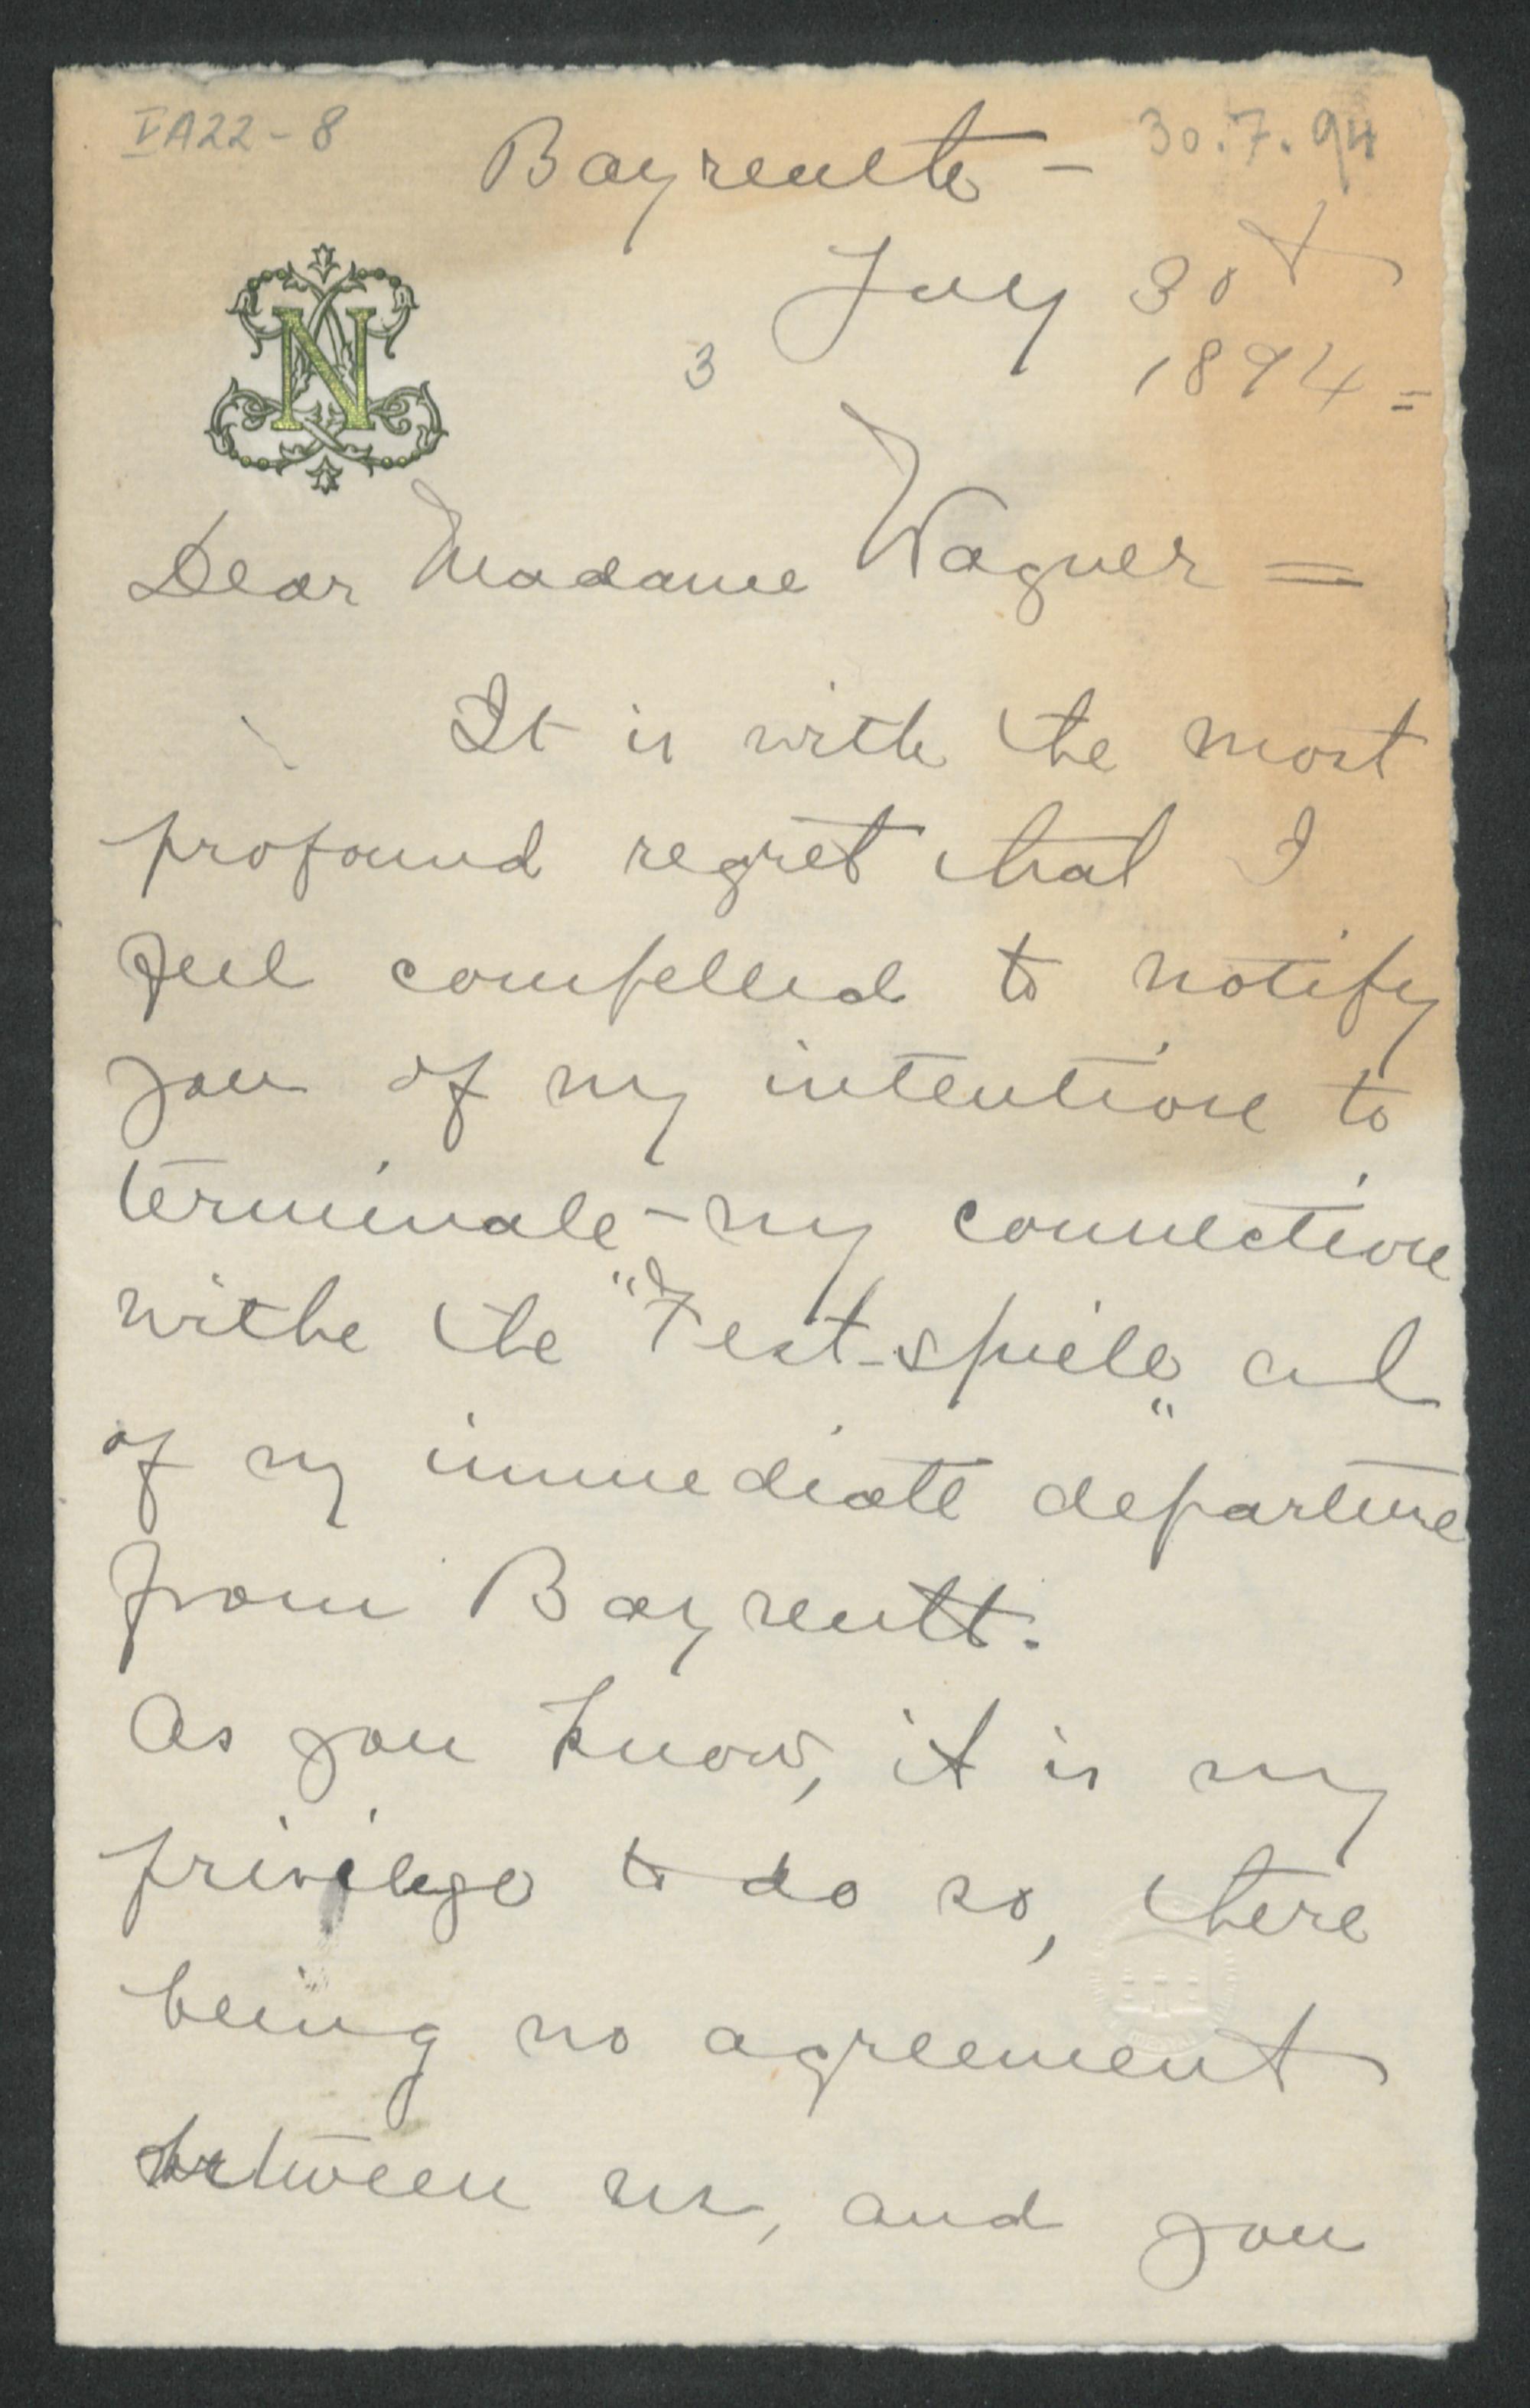 VA22-8
30.7.94
Bayreuth -
July 30th
3
1894 =
N
Dear Madame Wagner =
It is with the most
profound regret that I
feel compelled to notify
you of my intention to
terminate - my connection
withe the "Fest-spiele" and
of my immediate departure
from Bayreuth.
As you know, it is my
privilege to do so, there
being no agreement
between us, and you